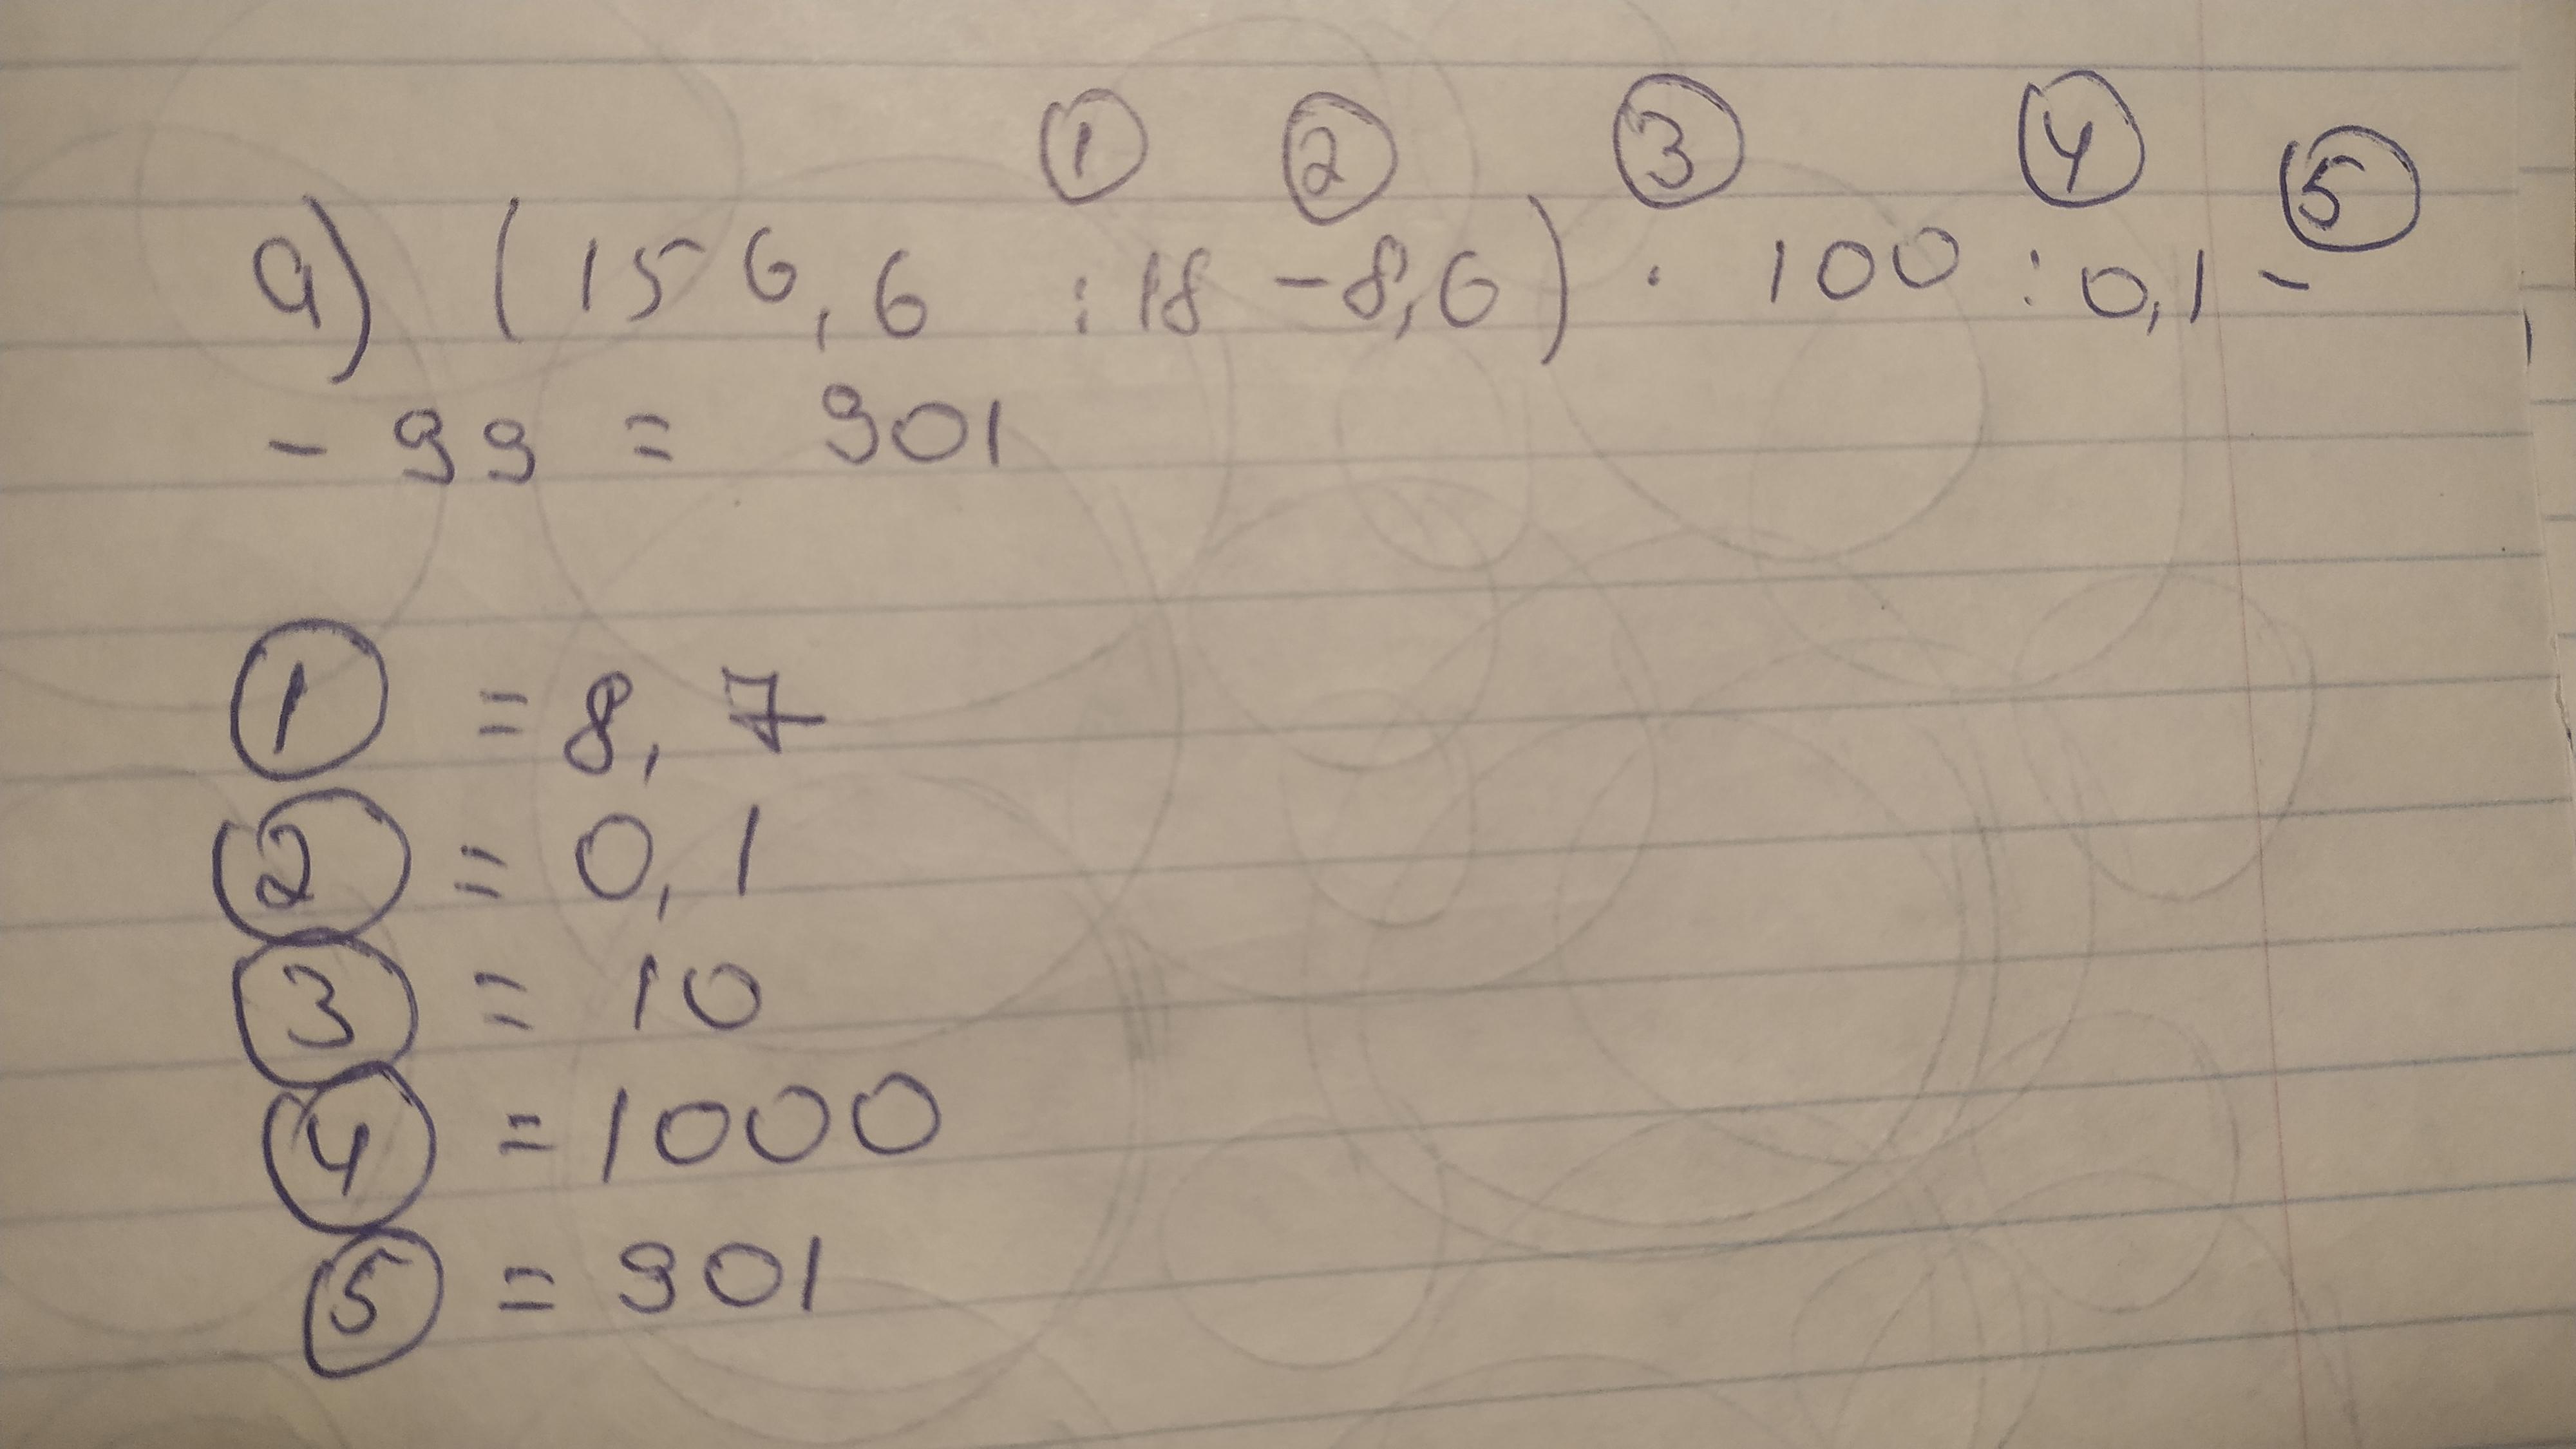 ① ② ③ ④ ⑤
а) (156,6 :18 -8,6) · 100 : 0,1 -
- 99 = 901
① = 8,7
② = 0,1
③ = 10
④ = 1000
⑤ = 901